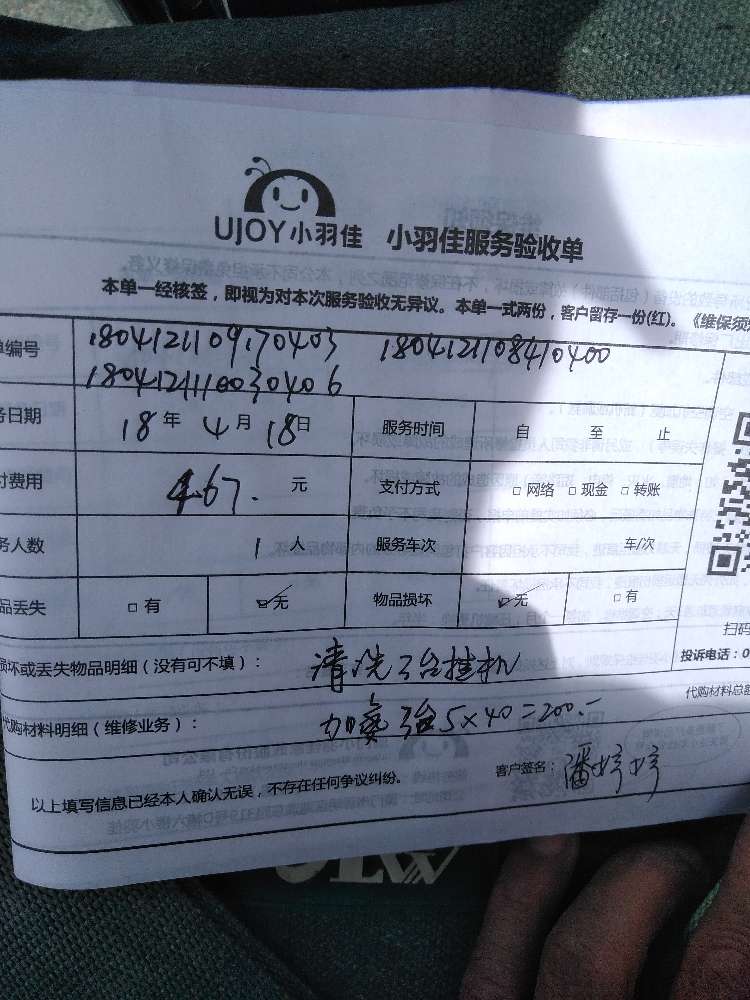 UJOY小羽佳 小羽佳服务验收单
本单一经核签，即视为对本次服务验收无异议。本单一式两份，客户留存一份(红)。《维保须
单编号 1804121109170403 1804121108410400
1804121110030406
务日期 18年 4月 18日 服务时间 自 至 止
付费用 467. 元 支付方式 □网络 □现金 □转账
务人数 1人 服务车次 车/次
品丢失 □有 ☑无 物品损坏 ☑无 □有
扫码
损坏或丢失物品明细（没有可不填）： 清洗7台挂机 投诉电话：0
代购材料总额
代购材料明细（维修业务）： 5×40=200.-
以上填写信息已经本人确认无误，不存在任何争议纠纷。 客户签名：潘婷婷